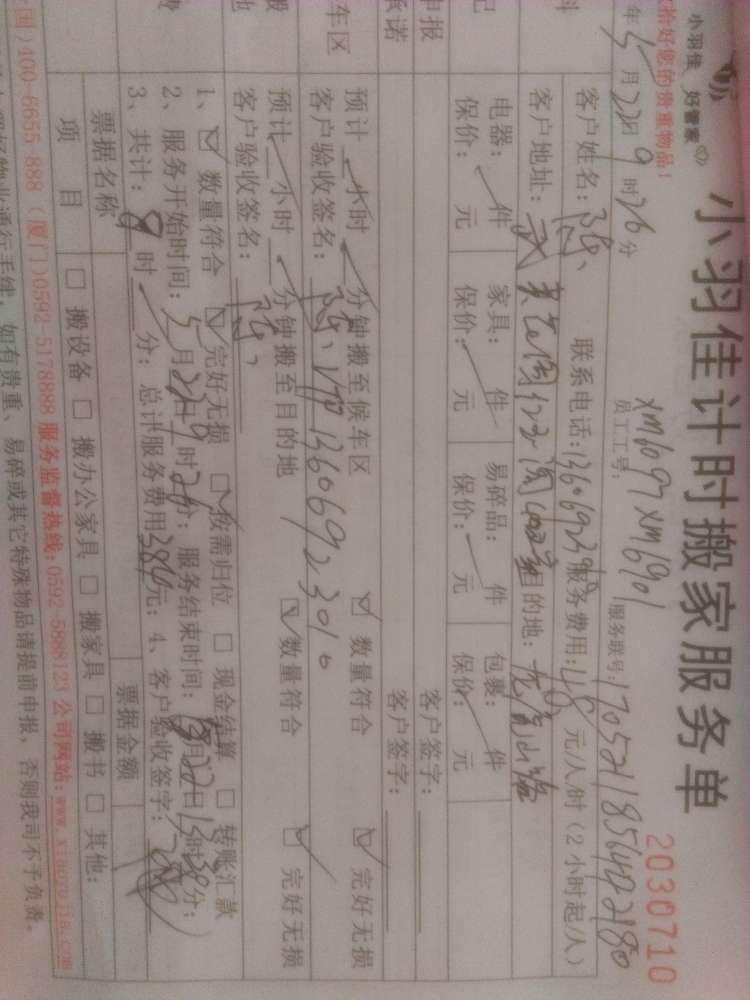 小羽佳 好管家
小羽佳计时搬家服务单
2030710
恰好您的贵重物品!
xm6097 xm6901
员工工号:
服务联号:
年5月22日9时26分
客户姓名:陈、 联系电话: 服务费用:48元/人时(2小时起/人)
客户地址: 目的地:
电器: 件 家具: 件 易碎品: 件 包裹: 件
保价: 元 保价: 元 保价: 元 保价: 元
申报
客户签字:
承诺
客户签字:
车区
预计 小时 分钟搬至候车区 ☑ 数量符合 ☑ 完好无损
客户验收签名:陈、VIP 13606923010
预计 小时 分钟搬至目的地 ☑ 数量符合 ☑ 完好无损
客户验收签名:陈、
1、☑ 数量符合 ☑ 完好无损 ☑ 按需归位 □ 现金结算 □ 转账汇款
2、服务开始时间:5月22日9时26分;服务结束时间: 月22日13时 分;
3、共计:8时 分;总计服务费用384元;4、客户验收签字:
票据名称 票据金额
项目 □ 搬设备 □ 搬办公家具 □ 搬家具 □ 搬书 □ 其他:
国)400-6655-888 (厦门)0592-5178888 服务监督热线:0592-5888123 公司网站:www.xiaoyujia.com
物业通行手续,如有贵重、易碎或其它特殊物品请提前申报,否则我司不予负责。